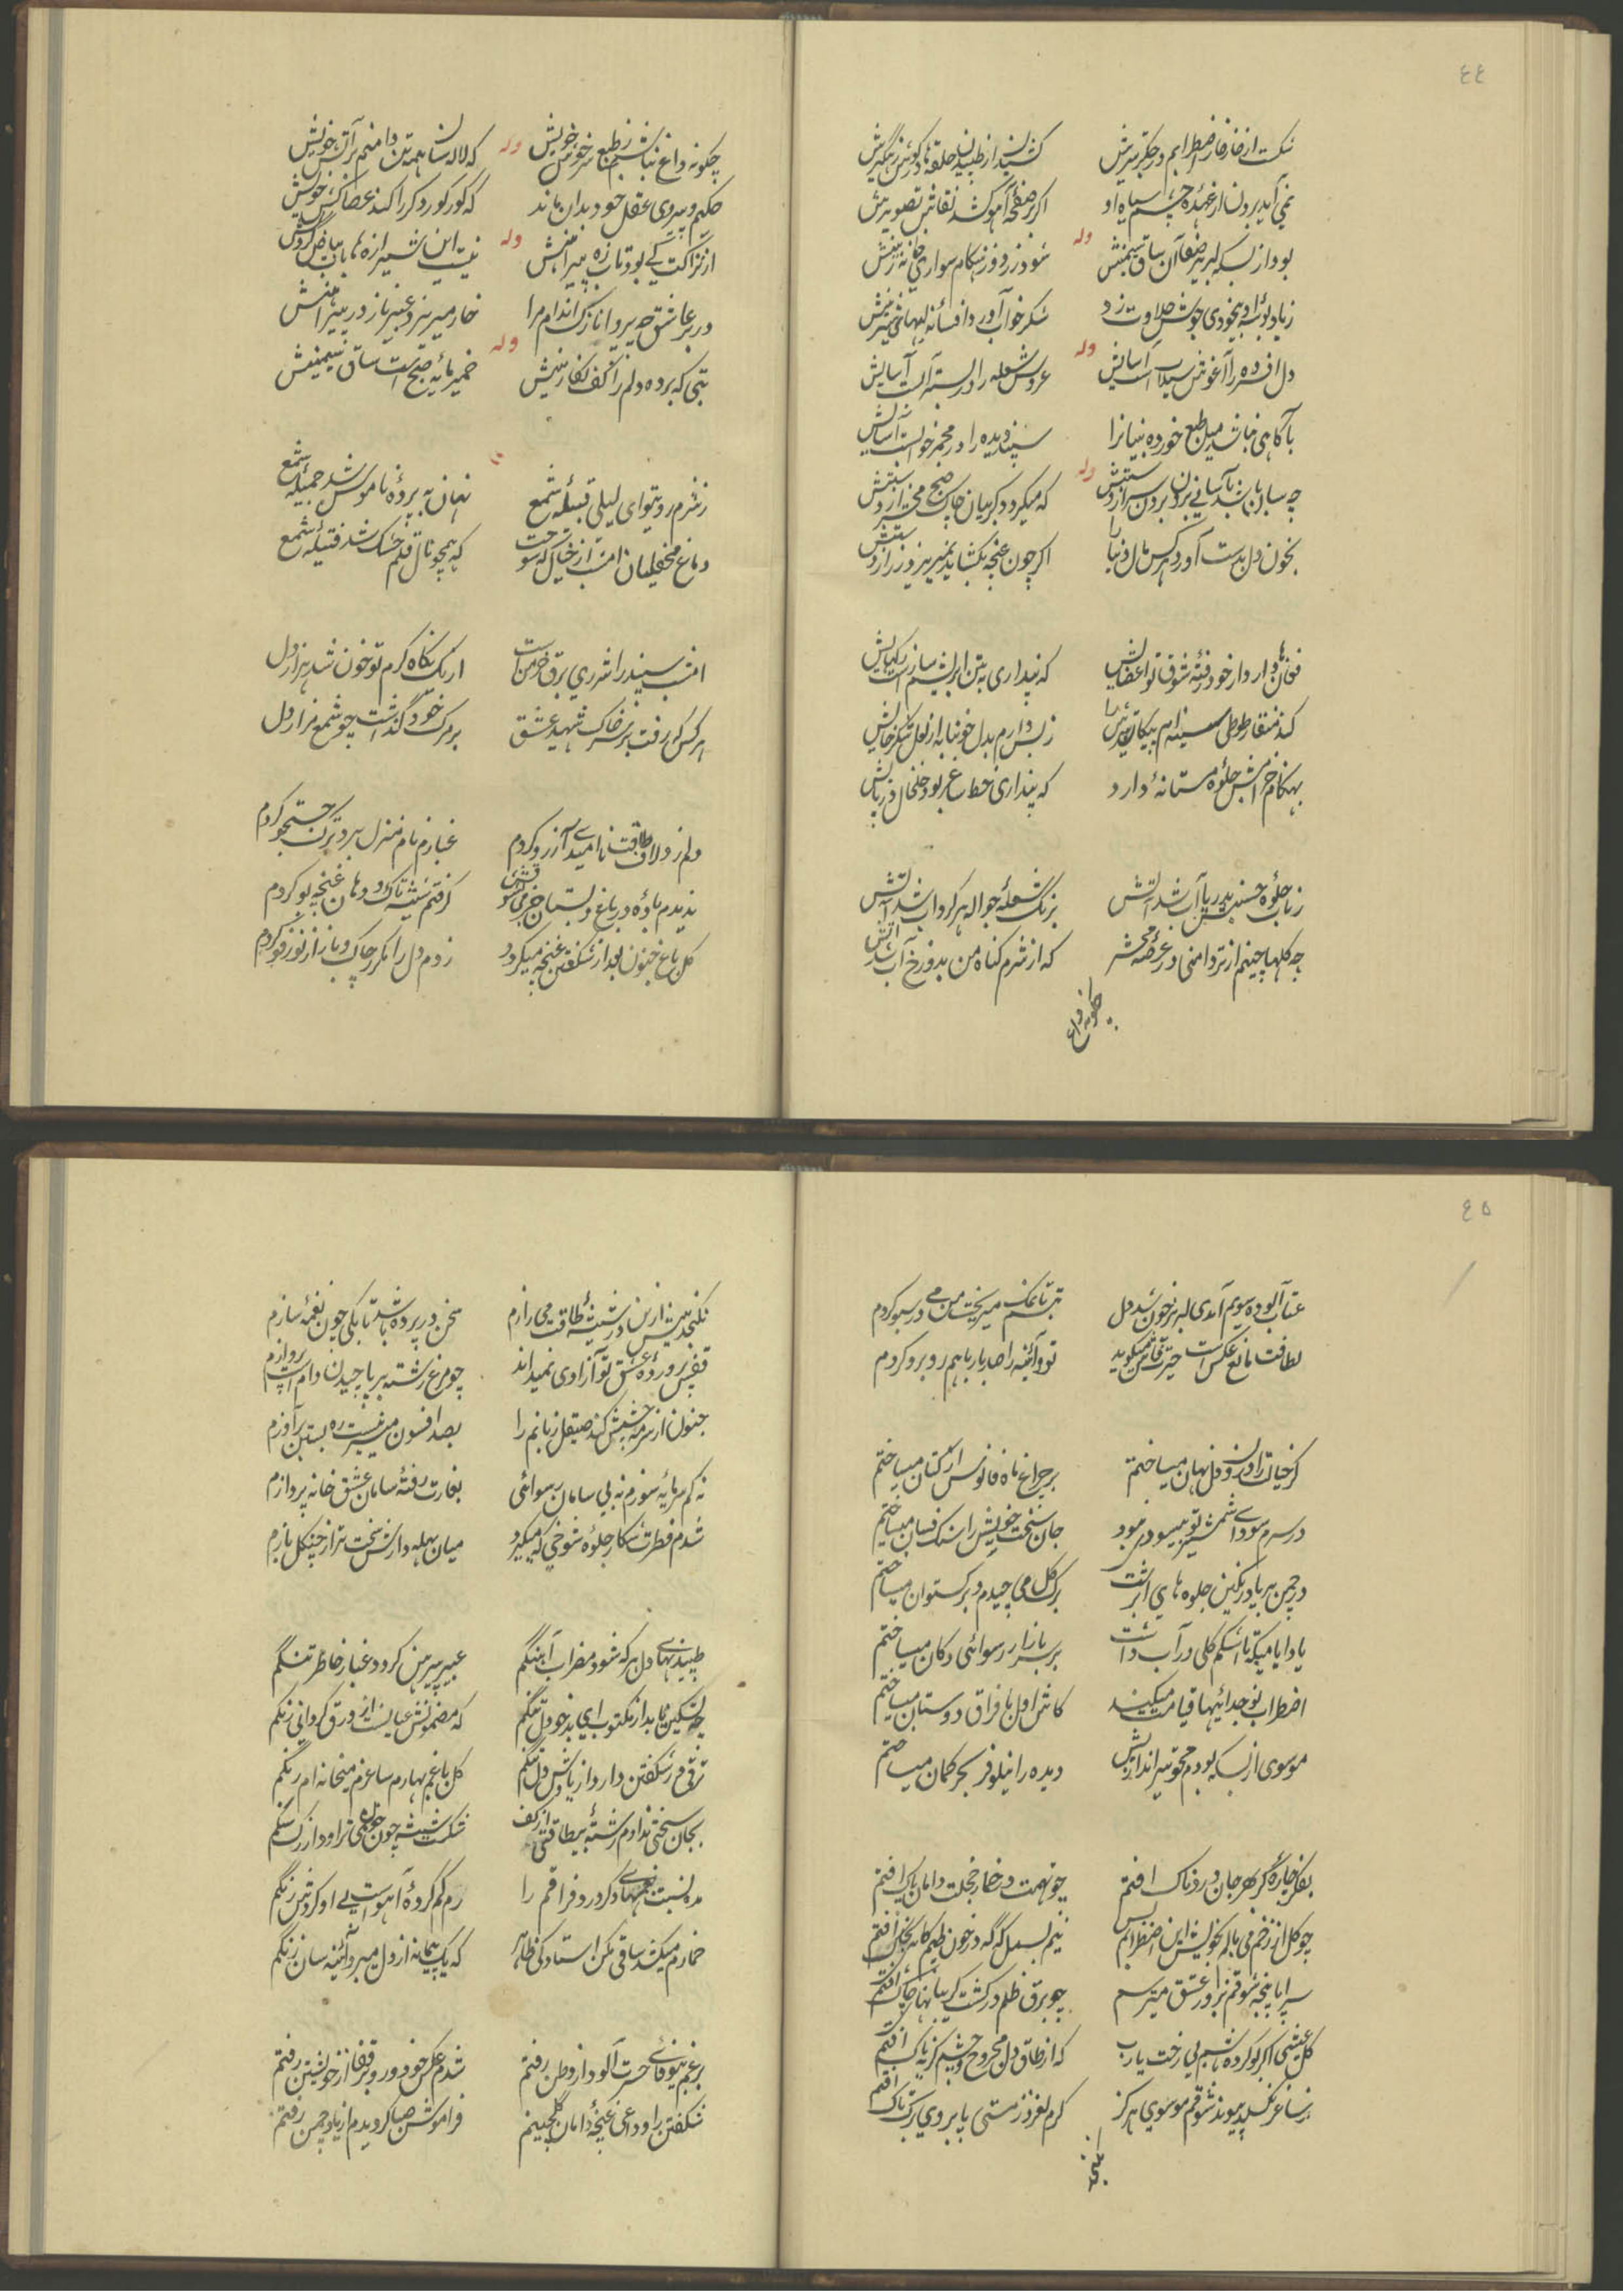 ٤٤
شکست از خار خار اضطرابم در جکر تیرش
کشیدن از طپیدن حلقها در کوش زنجیرش
نمی آید برون از عهده چشم سیاه او
اکر صفحه آهو کشد نقاش تصویرش
وله
بود از بسکه لبریز صفا آن ساق سیمینش
شود زر روز هنکام سواری خانه زینش
زیاد بوسه او بیخودی جوش حلاوت زد
شکر خواب آورد افسانه لبهای شیرینش
وله
دل افسرده را آغوش سیلابست آسایش
عروس شعله را در بستر آبست آسایش
باکاهی نباشد میل طبع خورده بینانرا
سپند دیده را در مجمر خوابست آسایش
وله
چه سان باشد باسانی برون بردن سر از دستش
که میکردد کریبان چاک صبح محشر از دستش
بخون دل بدست آورد هر کس مال دنیا را
اکر چون غنچه بکشاید نمیریزد زر از دستش
فغان ها دارد از خود رفته شوق تو اعضایش
که پنداری به تن ابریشم ساز است رکهایش
کند منقار طوطی سینه ام پیکان تیرش را
ز بس دارم بدل خونابه از لعل شکر خایش
بهنکام خرامش جلوه مستانه دارد
که پنداری خط ساغر بود خلخال در پایش
ز تاب جلوه حسنش بدریا آب شد آتش
برنک شعله جواله هر کرداب شد آتش
چه کلها چینم از تر دامنی در عرصه محشر
که از شرم کناه من بدوزخ آب شد آتش
چکونه داغ
چکونه داغ نباشم ز طبع سرخوش خویش
که لاله سان همه تن دامنم بر آتش خویش
وله
حکیم و پیروی عقل خود بدان ماند
که کور کور دکر را کند عصاکش خویش
از نزاکت کی بود تاب زه پیراهنش
نیست این شیرازه ها باب بیاض کردنش
وله
در بر عاشق چه پروا نازک اندام مرا
خار میریزد عبیر ناز در پیراهنش
بتی که برده دلم را کف نکارینش
خمیر مایه صبح است ساق سیمینش
وله
ز شرم رویتو ای لیلی قبیله شمع
نهان به پرده ناموس شد جمیله شمع
دماغ محفلیان امشب از خیال که سوخت
که همچو نال قلم خشک شد فتیله شمع
امشب سپند را شرری برق خرمن است
از یک نکاه کرم تو خون شد هزار دل
هر کس که رفت بر سر خاک شهید عشق
بر مرک خود کذاشت چو شمع مزار دل
دلم زد لاف طاقت نا امیدی آرزو کردم
غبارم نام منزل برد ترک جستجو کردم
ندیدم باده در باغ و بستان خرمی بخشد
کرفتم شیشه تاک و دهان غنچه بو کردم
کل باغ جنون بعد از شکفتن غنچه میکردد
زدم دل را مکرر چاک و باز از نو رفو کردم
٤٥
عتاب آلوده سویم آمدی لبریز خون شد دل
تبسم تا نمک میریخت من می در سبو کردم
لطافت مانع عکس است حیرت فاش میکوید
تو و آئینه را صد بار با هم روبرو کردم
کر خیالت را درون دل نهان میساختم
بر چراغ ماه فانوس از کتان میساختم
در سرم سودای شمشیر تو بیسودی نبود
جان سخت خویش را سنک فسان میساختم
در چمن بر یاد رنکین جلوه های ابرشت
برک کل می چیدم و برکستوان میساختم
یاد ایامیکه تا اشکم کلی در آب داشت
بر سر بازار رسوائی دکان میساختم
اضطراب نو جدائیها قیامت میکند
کاش اول با فراق دوستان میساختم
موسوی از بسکه بودم محو تیر اندازیش
دیده را نیلوفر بحر کمان میساختم
بفکر چاره کر بهر جان دردناک افتم
چو تهمت در خار خجلت دامان پاک افتم
چو کل از زخم می بالم بخویش این اضطرابم بس
نیم بسمل که که در خون طپم کاهی بخاک افتم
سراپا پنجه شوقم بزور عشق میترسم
چو برق ظلم در کشت کریبانهای چاک افتم
کل عیشی اکر بو کرده باشم بی رخت یارب
که از طاق دل مجروح و چشم کریه ناک افتم
ز ساغر نکسلد پیوند شوقم موسوی هرکز
کرم لغزد ز مستی پا بروی ریک تاک افتم
نکنجد
نکنجد بیش ازین در شیشه طاقت می رازم
سخن در پرده باشد تا بکی چون نغمه سازم
قفس پرورده عشق تو آزادی نمیداند
چو مرغ رشته بر پا چیدن دام است پروازم
جنون از سرمه چشمش کند صیقل زبانم را
بصد افسون میسر نیست ره بستن بر آوازم
نه کم سرمایه شورم نه بی سامان رسوائی
بغارت رفته سامان عشق خانه پردازم
شدم فطرت شکار جلوه شوخی که میکیرد
میان بهله دارش سخت تر از چنکل بازم
طپیدنهای دل هرکه شود مضراب آهنکم
عبیر پیرهن کردد غبار خاطر تنکم
چه تسکین یابد از مکتوب ای بدخو دل تنکم
که مضمونش عیانست از ورق کردانی رنکم
ترقی در شکفتن دارد از یادش دل تنکم
کل باغم بهارم ساغرم میخانه ام رنکم
بجان سختی ندادم رشته بیطاقتی از کف
شکست شیشه چون خون می تراود از رک سنکم
مده نسبت بمنهای دکر درد فراقم را
رم کم کرده آهوست بی او کردش رنکم
خمارم میکشد ساقی مکن استادکی ظاهر
که یک پیمانه از دل میبرد آئینه سان زنکم
بر غم بیوفائی حسرت آلود از وطن رفتم
شدم عکس خود و رو بر قفا از خویشتن رفتم
شکفتن را وداعی غنچه دامان کلچینم
فراموش صبا کردیدم از یاد چمن رفتم